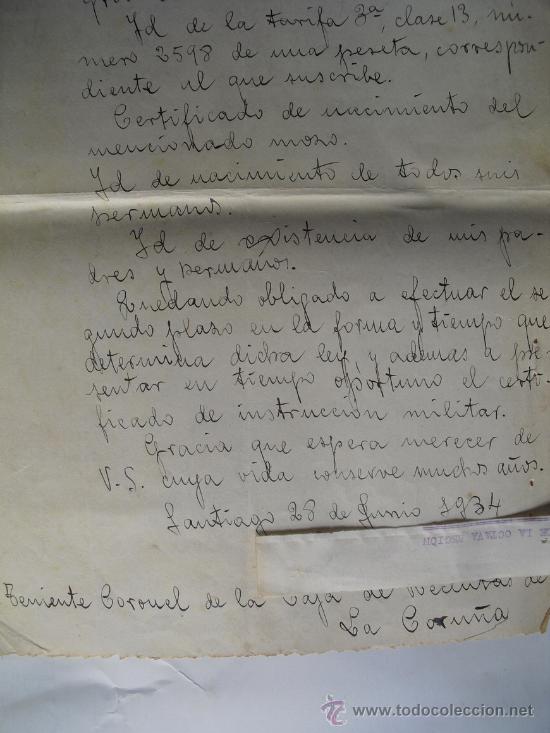 Id de la tarifa 3ª, clase 13, nú-
mero 2598 de una peseta, correspon-
diente al que suscribe.
Certificado de nacimiento del
mencionado mozo.
Id de nacimiento de todos sus
hermanos.
Id de existencia de mis pa-
dres y hermanos.
Quedando obligado a efectuar el se
gundo plazo en la forma y tiempo que
determina dicha ley, y ademas a pre
sentar en tiempo oportuno el certi-
ficado de instrucción militar.
Gracia que espera merecer de
V.S. cuya vida conserve muchos años.
Santiago 28 de Junio 1934
DE LA OCTAVA REGIÓN
Teniente Coronel de la Caja de Reclutas de
La Coruña
www.todocoleccion.net